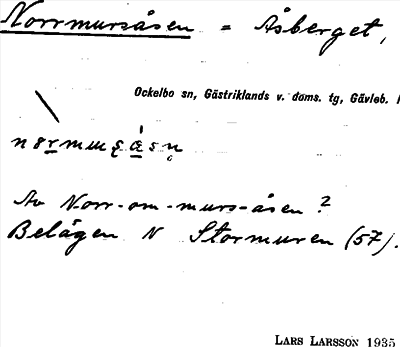 Norrmursåsen = Åsberget,
Ockelbo sn, Gästriklands v. doms. tg, Gävleb.
Av Norr-om-murs-åsen?
Belägen N Stormuren (57).
LARS LARSSON 1935